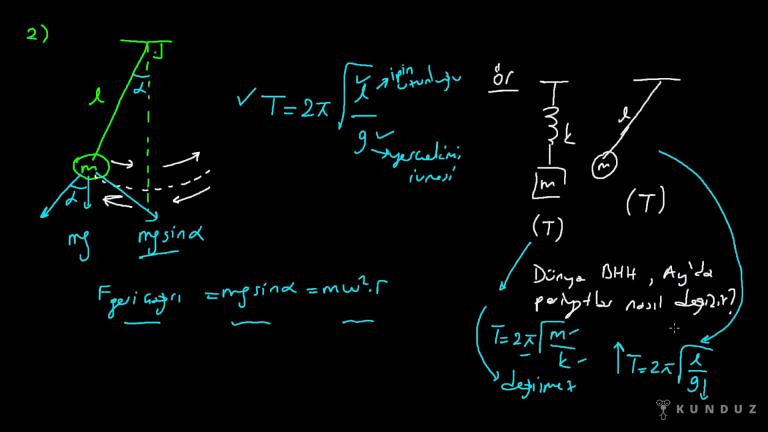 2)
α
l
m
α
mg
mgsinα
T=2π√l/g
ipin uzunluğu
yerçekimi
ivmesi
Fgeri çağrı = mgsinα = mω².r
ör
k
m
(T)
l
m
(T)
Dünya BHH, Ay'da
periyotlar nasıl değişir?
T=2π√m/k
değişmez
↑T=2π√l/g↓
KUNDUZ